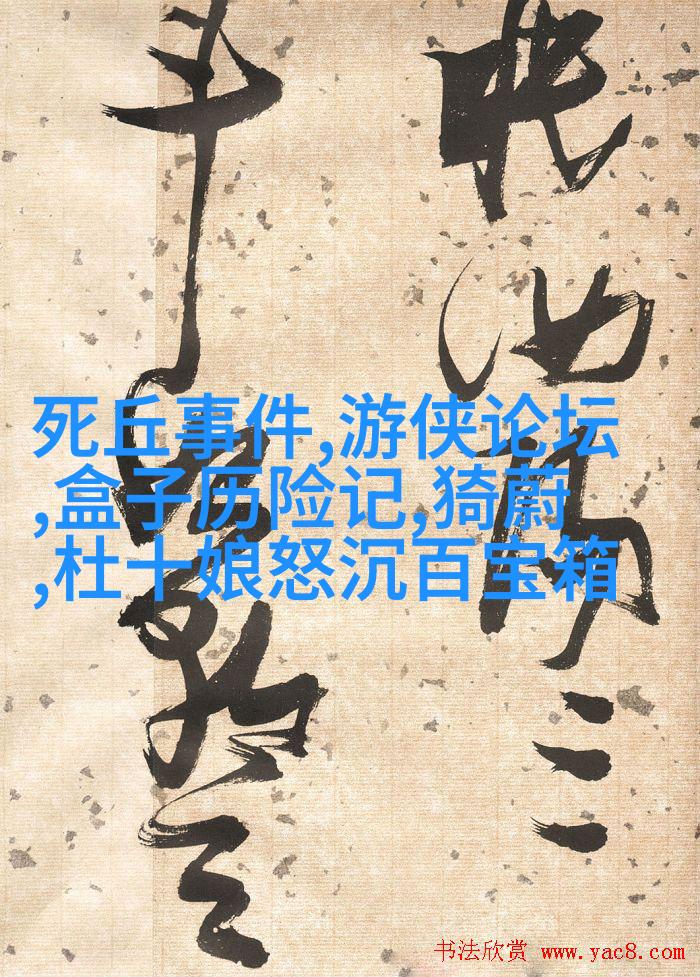 眠汝陽三
斗始朝天
死丘事件,游侠论坛
,盒子历险记,猗蔚
,杜十娘怒沉百宝箱
书法欣赏 www.yac8.com